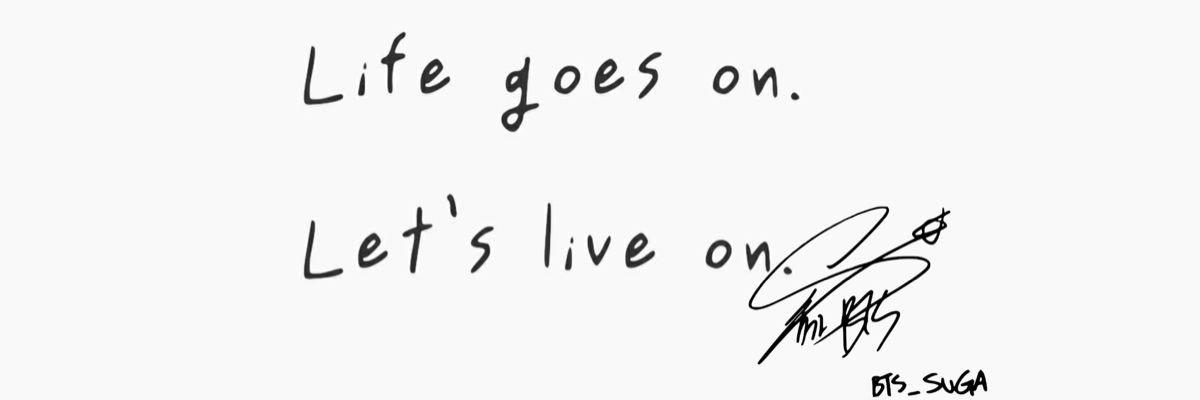 Life goes on.
Let's live on.
BTS_SUGA